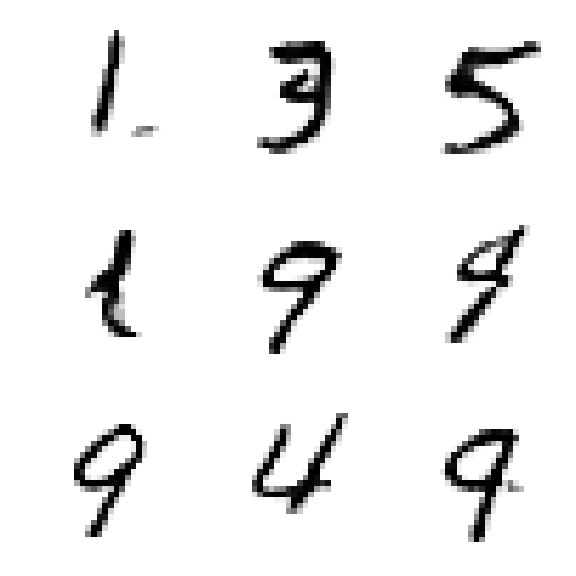 1 3 5
1 9 9
9 4 9